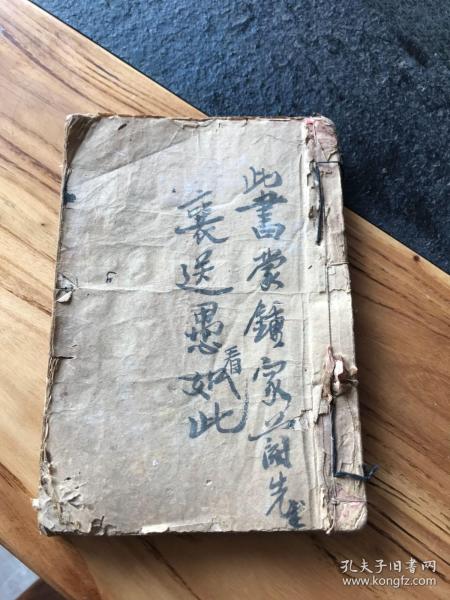 此書蒙鍾家蘭先生
裏送愚看如此
孔夫子旧书网
www.kongfz.com